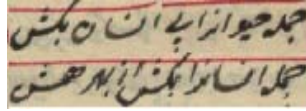 جمله حیوانرا پی انسان بکش
جمله انسانرا بکش از بهر هش